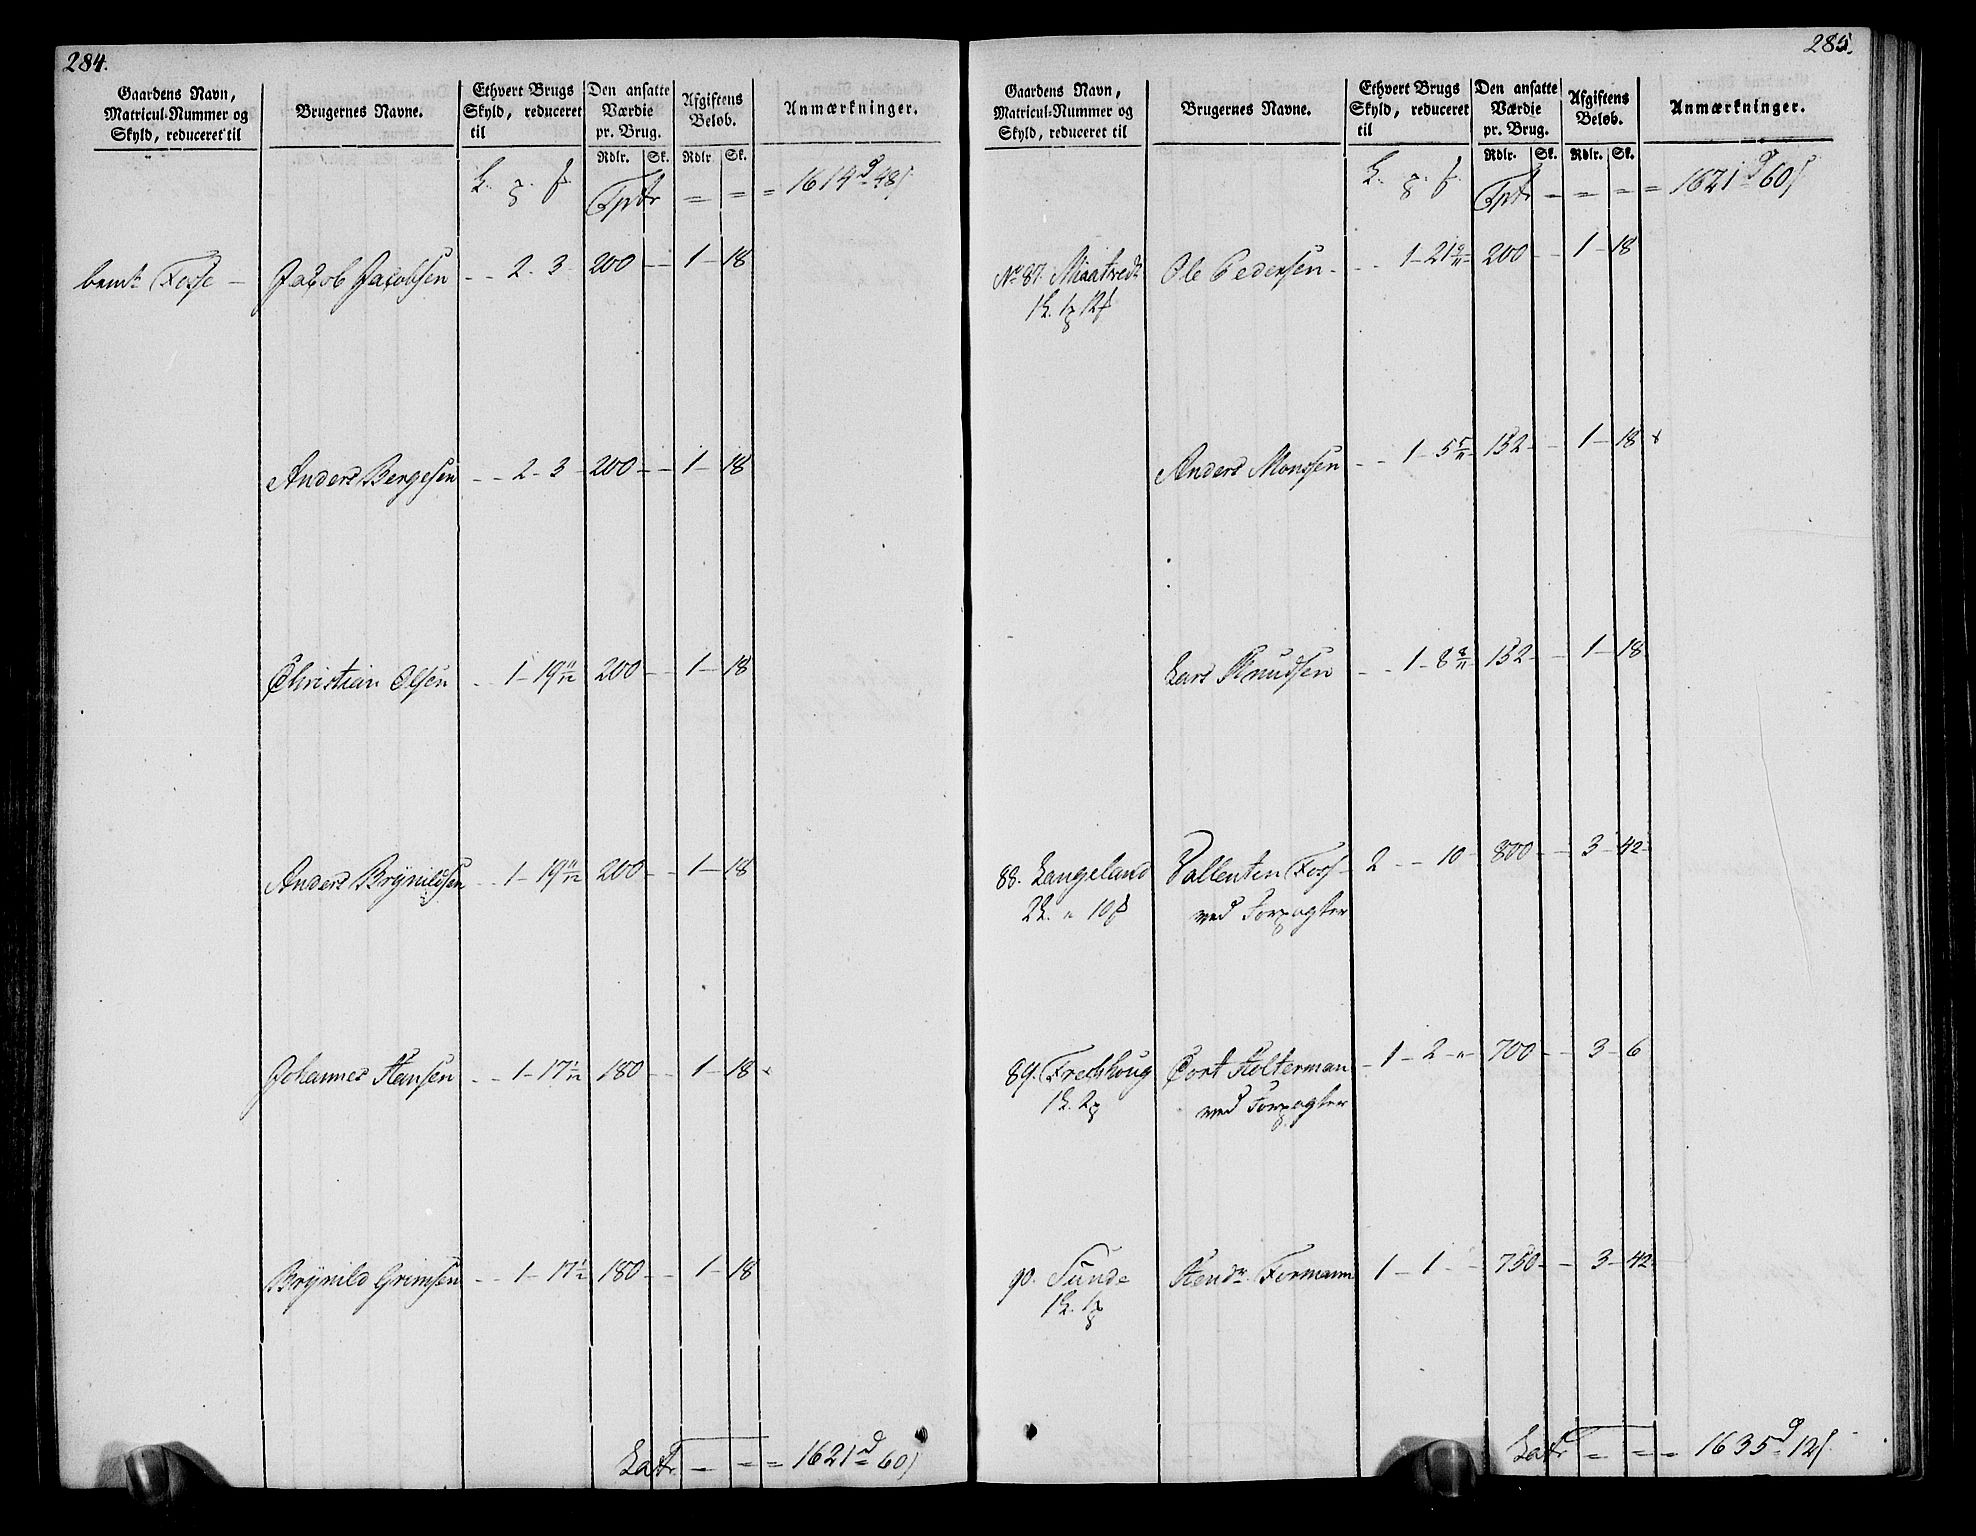 284.
Gaardens Navn, Matricul-Nummer og Skyld, reduceret til
Brugernes Navne.
Ethvert Brugs Skyld, reduceret til
Den ansatte Værdie pr. Brug.
Afgiftens Beløb.
Anmærkninger.
Rdlr. Sk. Rdlr. Sk.
Tptr = = = = 1614 d 48 s
bemte Fosse - Jacob Jacobsen - - 2 - 3 200 - - 1 - 18
Anders Bergesen - - 2 - 3 - 200 - - 1 - 18
Christian Olsen - - 1 - 19 11/12 200 - - 1 - 18
Anders Brynildsen - - 1 - 19 11/12 200 - - 1 - 18
Johannes Hansen - - 1 - 17 1/12 180 - - 1 - 18
Brynild Grimsen - - 1 - 17 1/2 180 - - 1 - 18
Latr = = = 1621 d 60 s
285.
Gaardens Navn, Matricul-Nummer og Skyld, reduceret til
Brugernes Navne.
Ethvert Brugs Skyld, reduceret til
Den ansatte Værdie pr. Brug.
Afgiftens Beløb.
Anmærkninger.
Rdlr. Sk. Rdlr. Sk.
Tptr = = = = 1621 d 60 s
No 87. Miaatvedt Ole Pedersen - - - 1 - 21 9/11 200 - - 1 - 18
Anders Monssen - - 1 - 5 5/11 152 - - 1 - 18
Lars Knudsen - - 1 - 8 8/11 152 - - 1 - 18
88. Langeland Vallentin Foss - 2 - - 10 - 800 - - 3 - 42
ved Forpagter
89. Frechhoug Cort Holterman - 1 - 2 - " - 700 - - 3 - 6
ved Forpagter
90. Sunde Hendr. Formann 1 - 1 - - 750 - - 3 - 42
Latr = = = 1635 d 12 s